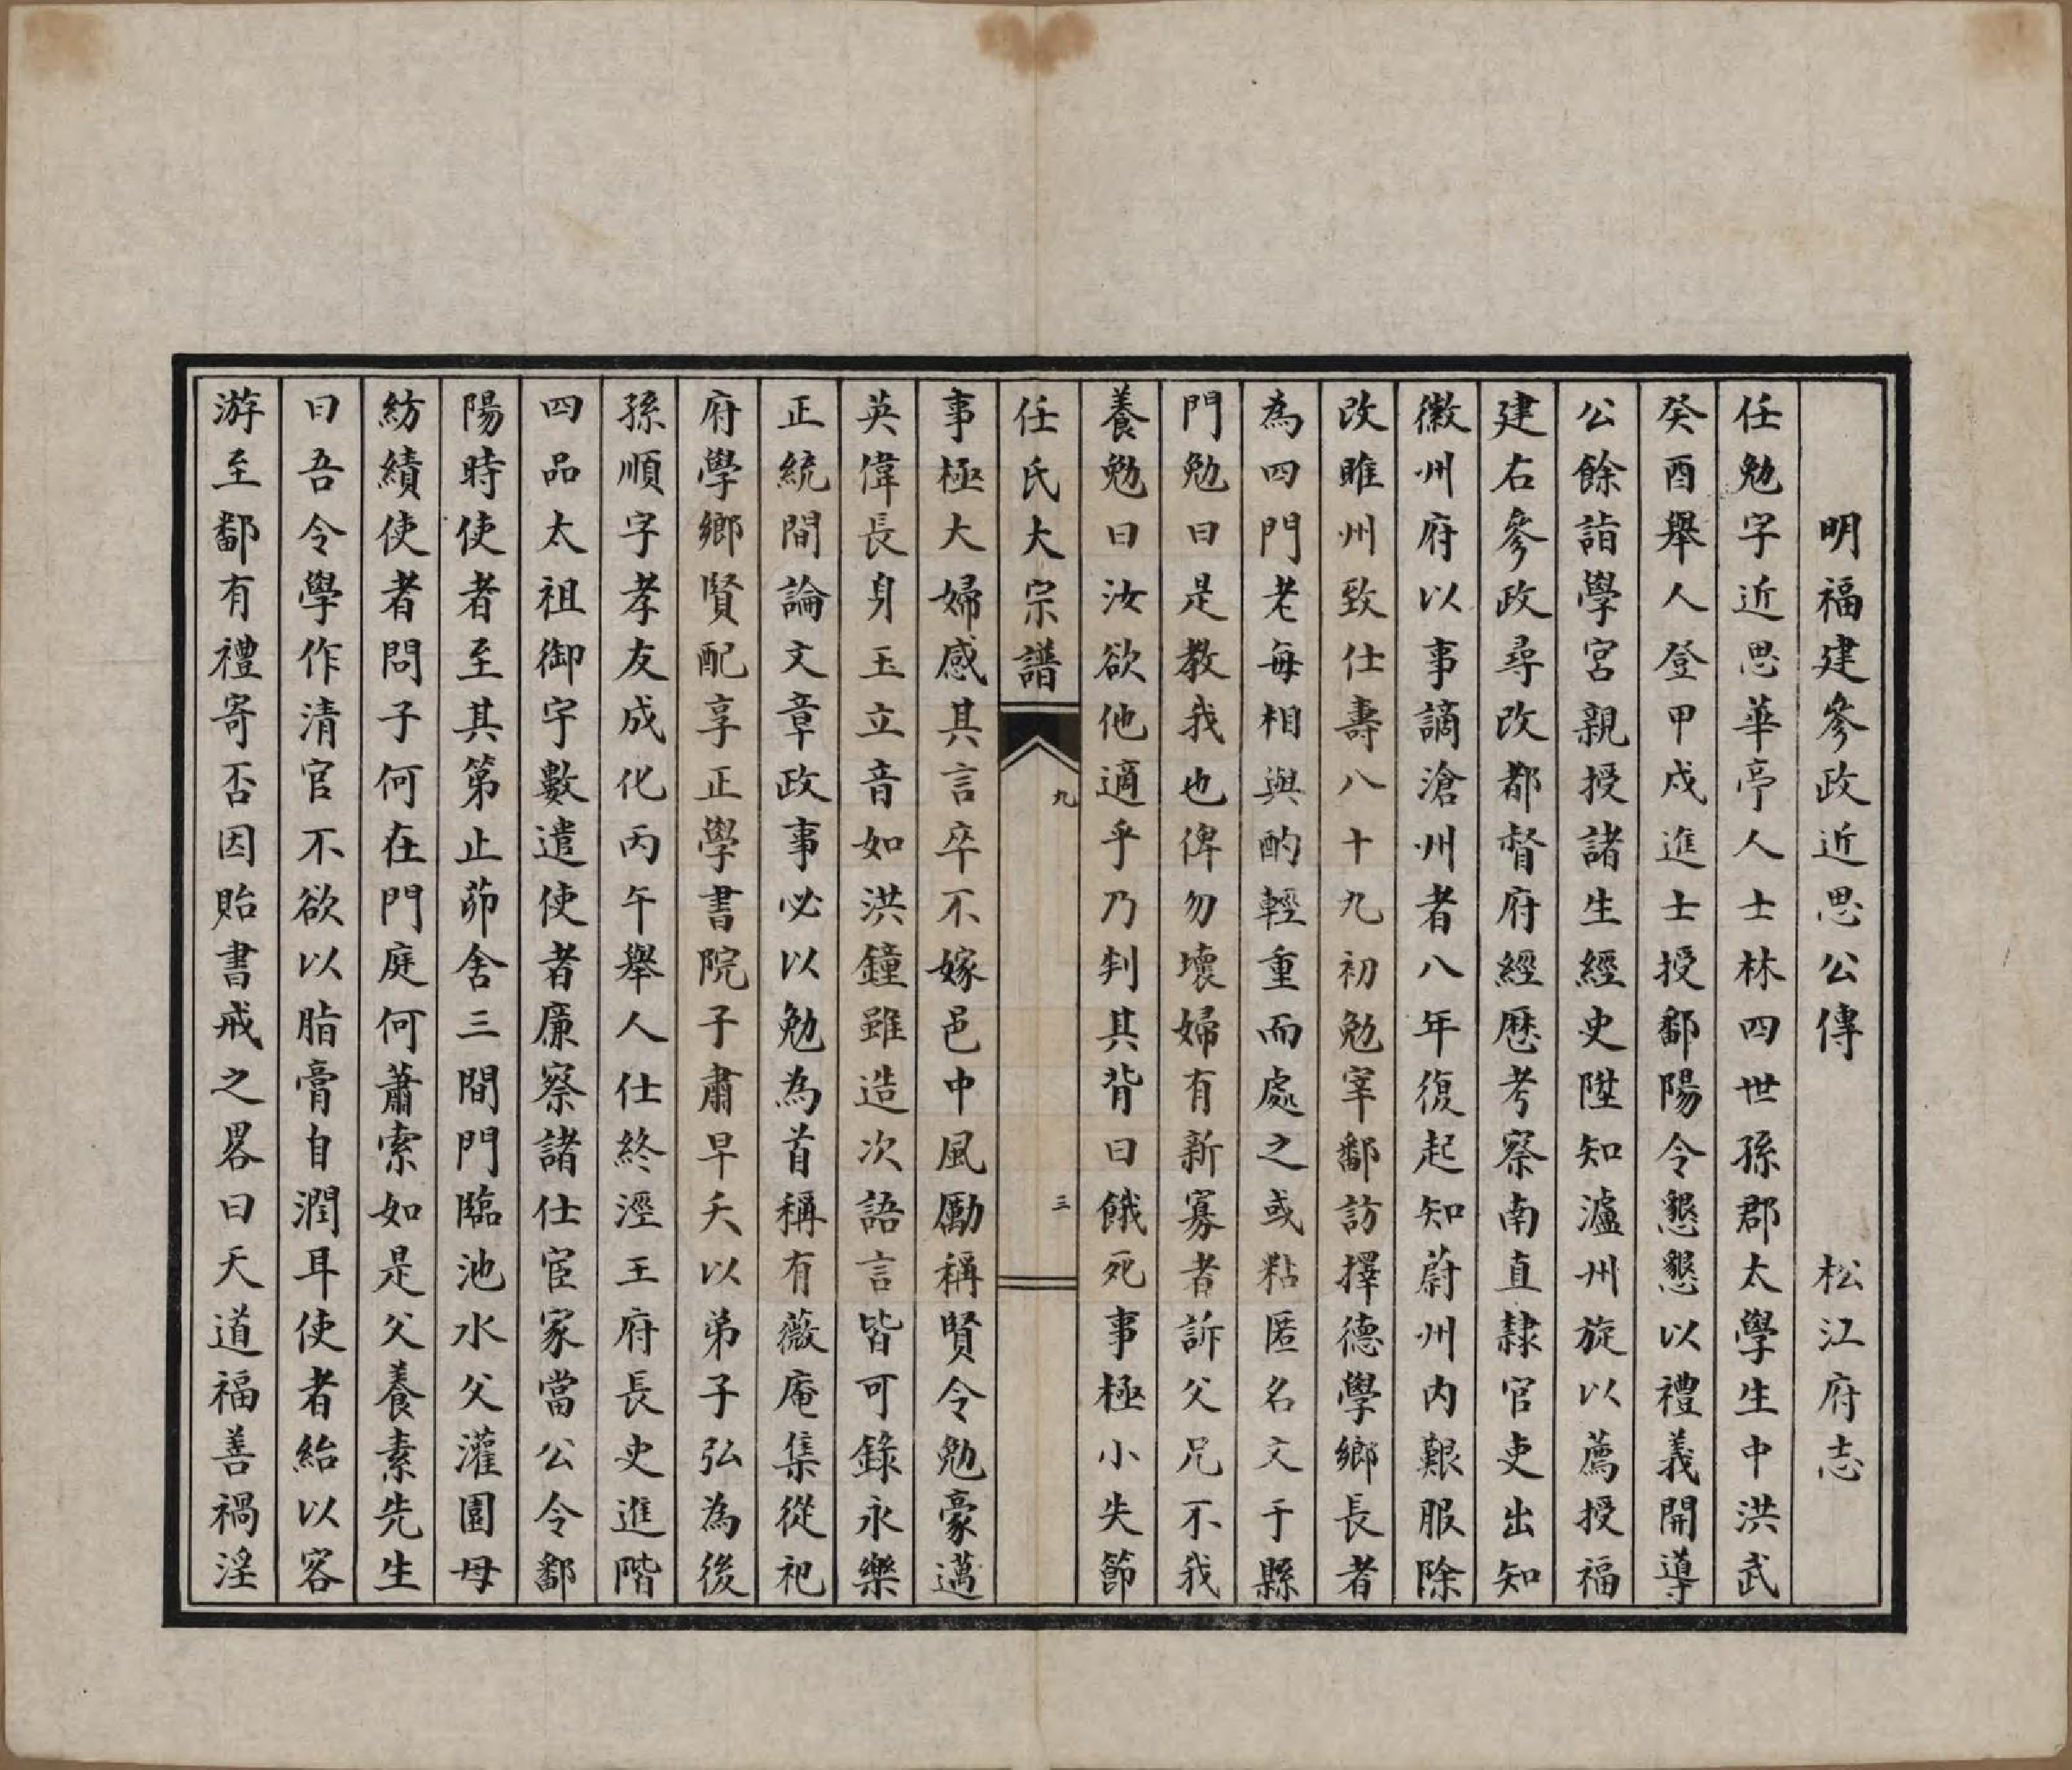 明福建參政近思公傳　松江府志
任勉字近思華亭人士林四世孫郡太學生中洪武
癸酉舉人登甲戍進士授鄱陽令懇懇以禮義開導
公餘詣學宮親授諸生經史陞知瀘州旋以薦授福
建右參政尋改都督府經歷考察南直隸官吏出知
徽州府以事謫滄州者八年復起知蔚州內艱服除
改睢州致仕壽八十九初勉宰鄱訪擇德學鄉長者
為四門老每相與酌輕重而處之或粘匿名文于縣
門勉曰是教我也俾勿壞婦有新寡者訴父兄不我
養勉曰汝欲他適乎乃判其背曰餓死事極小失節
任氏大宗譜
九
三
事極大婦感其言卒不嫁邑中風勵稱賢令勉豪邁
英偉長身玉立音如洪鐘雖造次語言皆可錄永樂
正統間論文章政事必以勉為首稱有薇庵集從祀
府學鄉賢配享正學書院子肅早夭以弟子弘為後
孫順字孝友成化丙午舉人仕終涇王府長史進階
四品太祖御宇數遣使者廉察諸仕宦家當公令鄱
陽時使者至其第止茆舍三間門臨池水父灌園母
紡績使者問子何在門庭何蕭索如是父養素先生
曰吾令學作清官不欲以脂膏自潤耳使者紿以客
游至鄱有禮寄否因貽書戒之畧曰天道福善禍淫